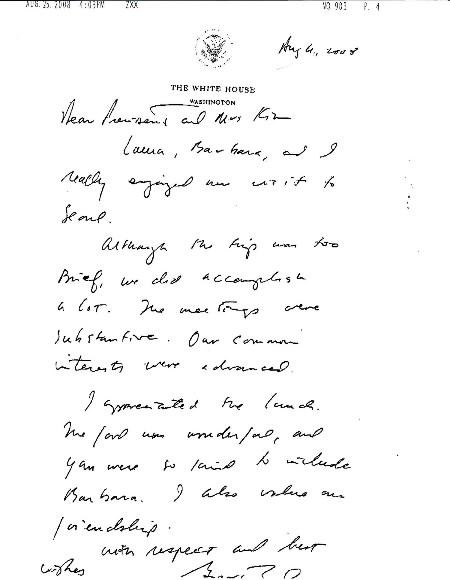 AUG. 25. 2008 4:03PM ZXX NO. 903 P. 4
Aug 6, 2008
THE WHITE HOUSE
WASHINGTON
Dear President and Mrs Kim
Laura, Barbara, and I
really enjoyed our visit to
Seoul.
Although the trip was too
Brief, we did accomplish
a lot. The meetings were
substantive. Our common
interests were advanced.
I appreciated the lunch.
The food was wonderful, and
you were so kind to include
Barbara. I also value our
friendship.
with respect and best
wishes